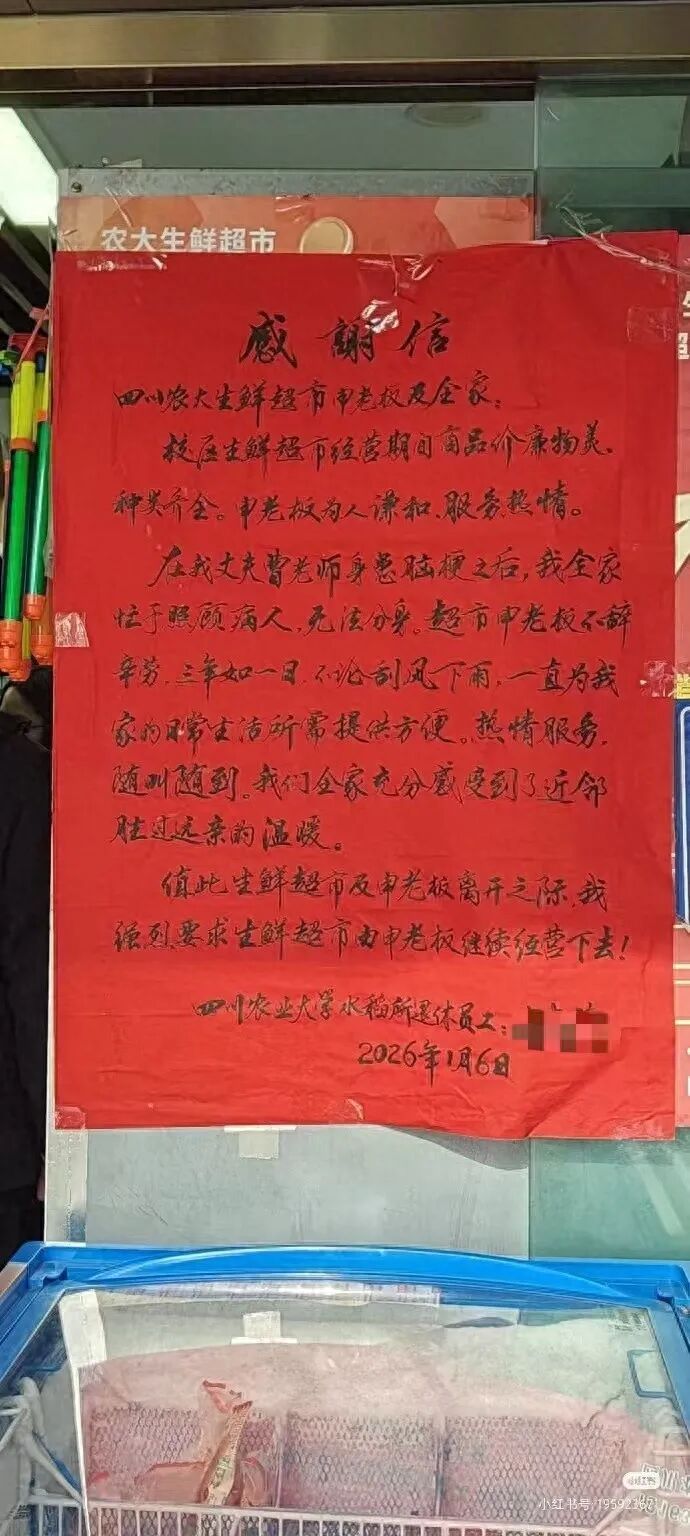 农大生鲜超市
感謝信
四川农大生鲜超市申老板及全家：
校区生鲜超市经营期间商品价廉物美、
种类齐全。申老板为人谦和、服务热情。
在我丈夫曹老师身患脑梗之后，我全家
忙于照顾病人，无法分身。超市申老板不辞
辛劳，三年如一日，不论刮风下雨，一直为我
家的日常生活所需提供方便。热情服务，
随叫随到。我们全家充分感受到了近邻
胜过远亲的温暖。
值此生鲜超市及申老板离开之际，我
强烈要求生鲜超市由申老板继续经营下去！
四川农业大学水稻所退休员工：
2026年1月6日
小红书